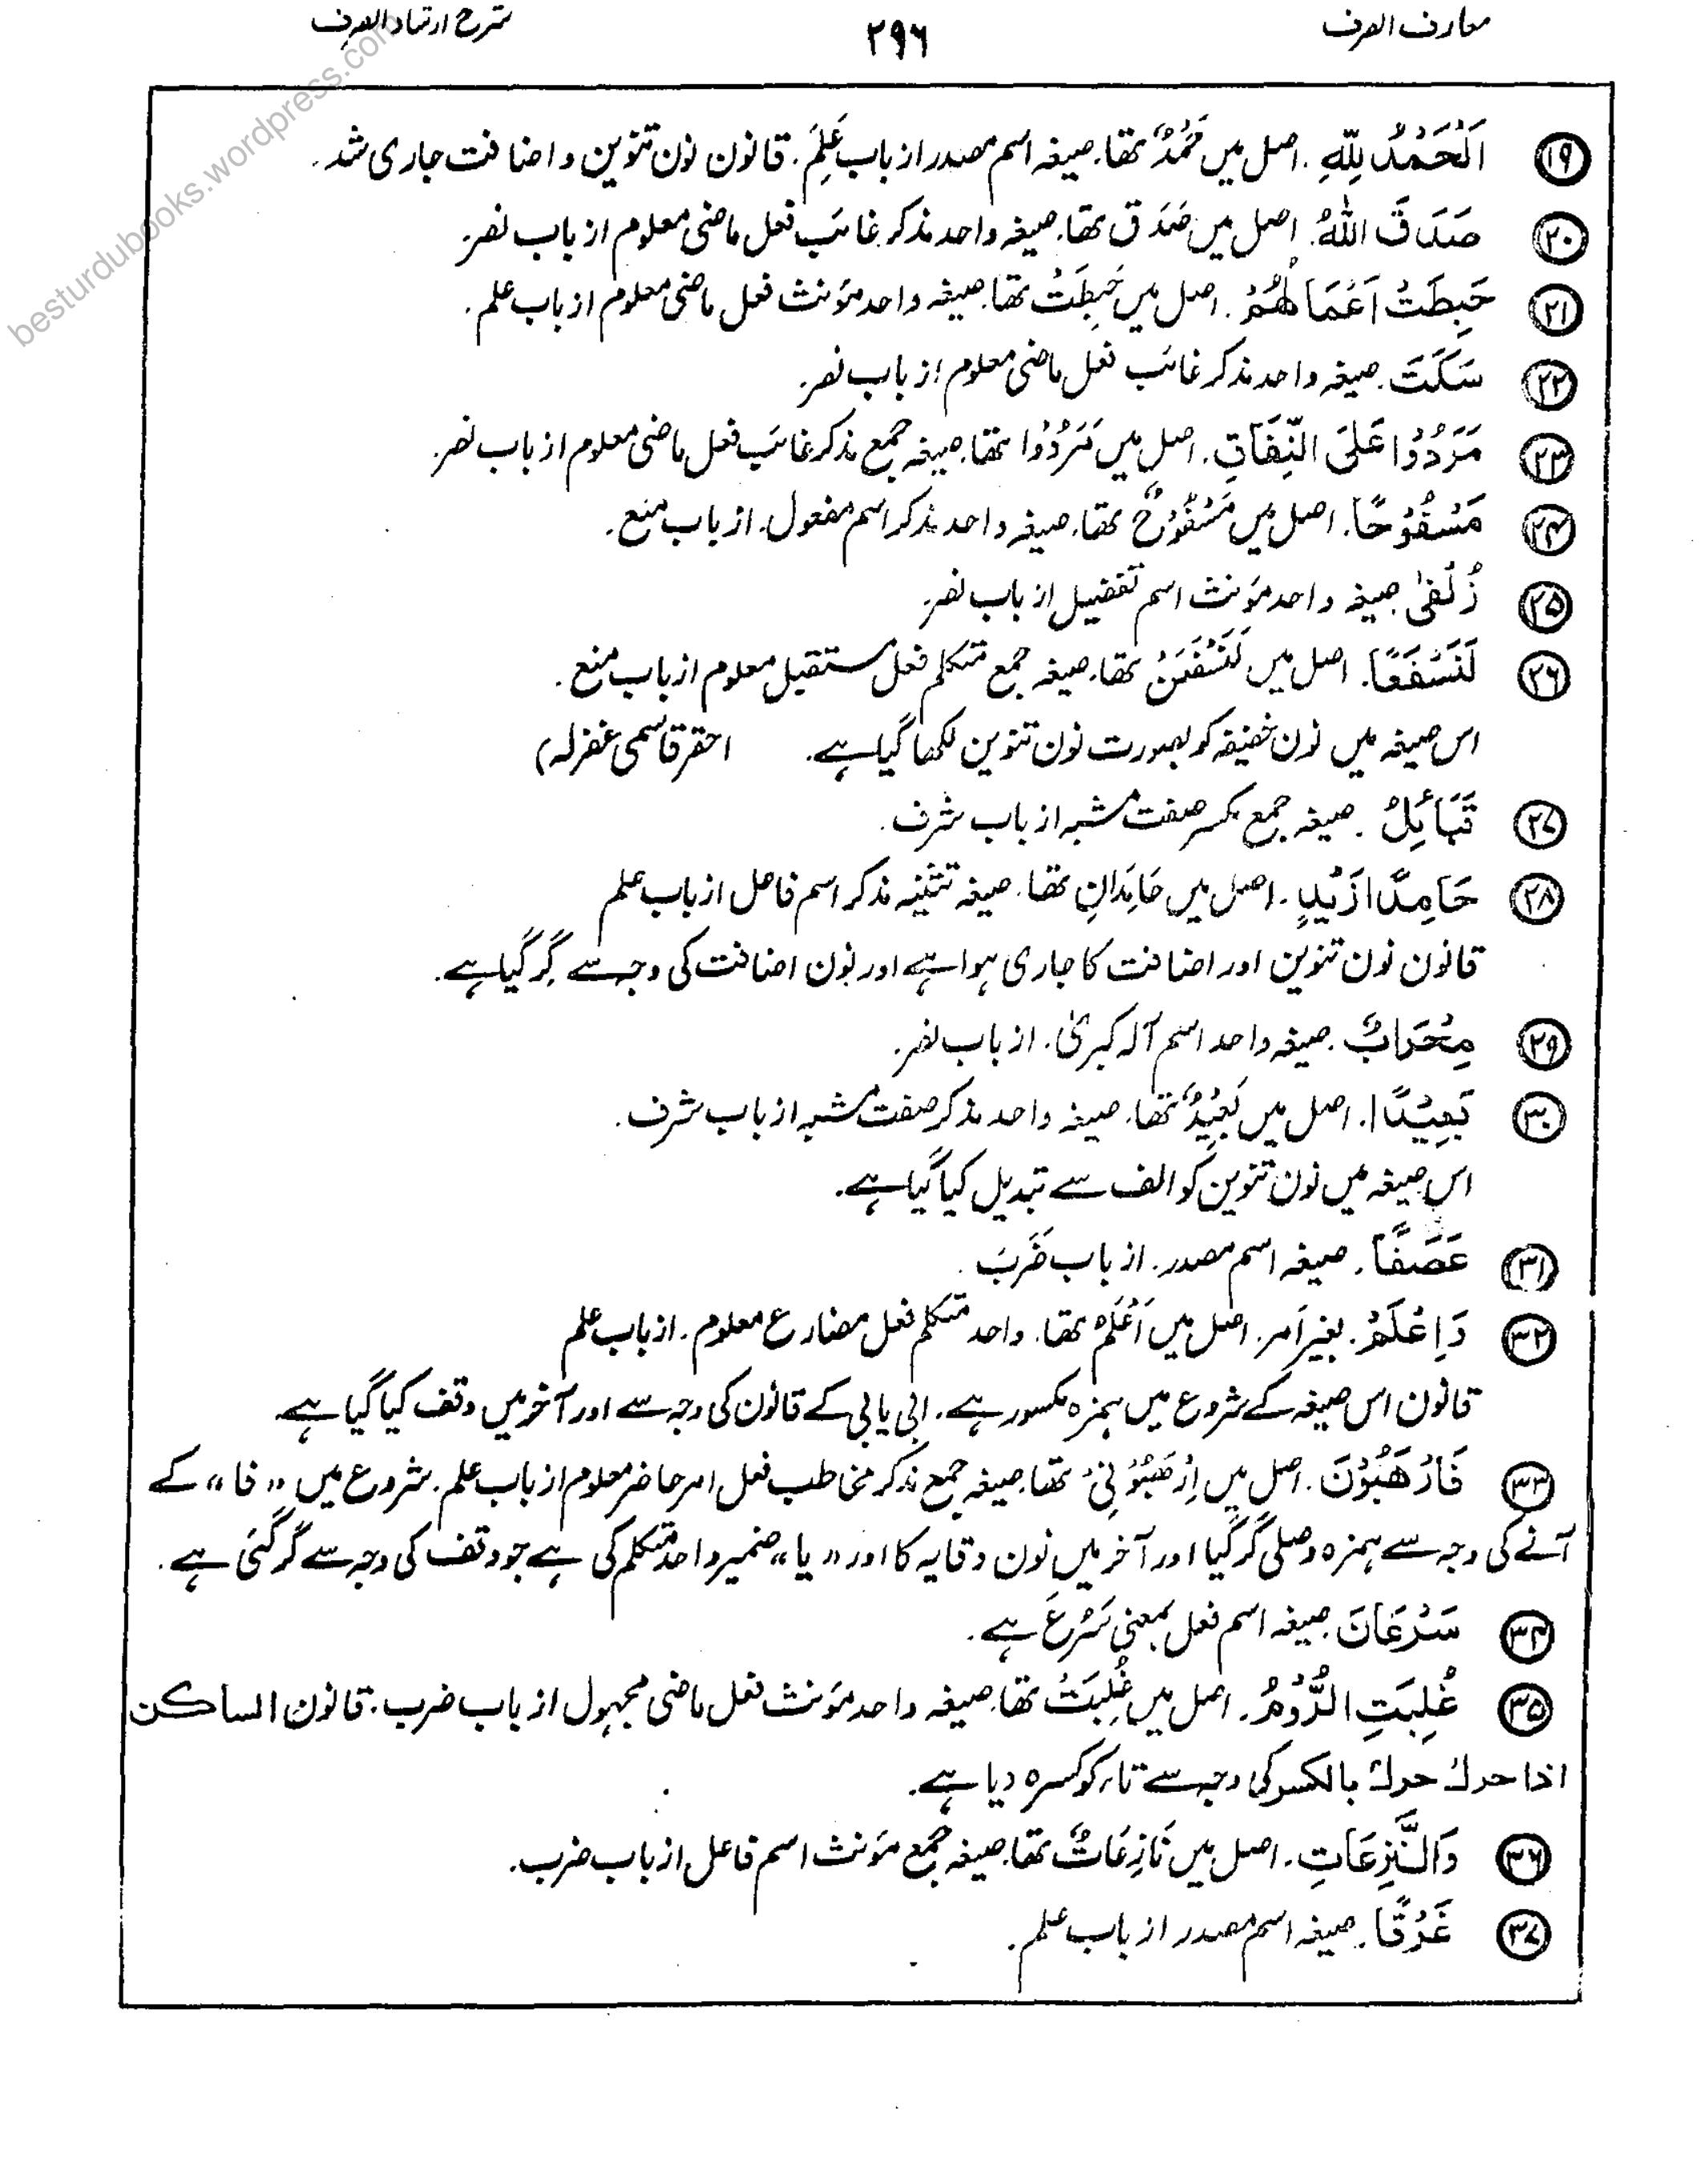 معارف الصرف
۲۹۶
شرح ارشاد الصرف
besturdubooks.wordpress.com
۱۹ اَلْحَمْدُ لِلّٰهِ. اصل میں حَمْدٌ تھا. صیغہ اسم مصدر از باب عَلِمَ. قانون نون تنوین و اضافت جاری شد.
۲۰ صَدَقَ اللّٰهُ. اصل میں صَدَقَ تھا. صیغہ واحد مذکر غائب فعل ماضی معلوم از باب نصر.
۲۱ حَبِطَتْ اَعْمَالُهُمْ. اصل میں حَبِطَتْ تھا. صیغہ واحد مؤنث فعل ماضی معلوم از باب علم.
۲۲ سَكَتَ. صیغہ واحد مذکر غائب فعل ماضی معلوم از باب نصر.
۲۳ مَرَدُوْا عَلَى النِّفَاقِ. اصل میں مَرَدُوْا تھا. صیغہ جمع مذکر غائب فعل ماضی معلوم از باب نصر.
۲۴ مَسْفُوْحًا. اصل میں مَسْفُوْحٌ تھا. صیغہ واحد مذکر اسم مفعول. از باب منع.
۲۵ زُلْفٰی صیغہ واحد مؤنث اسم تفضیل از باب نصر.
۲۶ لَنَسْفَعًا. اصل میں لَنَسْفَعَنْ تھا. صیغہ جمع متکلم فعل مستقبل معلوم از باب منع.
اس صیغہ میں نون خفیفہ کو بصورت نون تنوین لکھا گیا ہے. احقر قاسمی غفرلہ)
۲۷ قَبَائِلُ. صیغہ جمع مکسر صفت مشبہ از باب شرف.
۲۸ حَامِدَا زَيْدٍ. اصل میں حَامِدَانِ تھا. صیغہ تثنیہ مذکر اسم فاعل از باب علم
قانون نون تنوین اور اضافت کا جاری ہوا ہے اور نون اضافت کی وجہ سے گر گیا ہے.
۲۹ مِحْرَابٌ. صیغہ واحد اسم آلہ کبریٰ. از باب نصر.
۳۰ بَعِيْدًا. اصل میں بَعِيْدٌ تھا. صیغہ واحد مذکر صفت مشبہ از باب شرف.
اس صیغہ میں نون تنوین کو الف سے تبدیل کیا گیا ہے.
۳۱ عَصَفًا. صیغہ اسم مصدر. از باب ضَرَبَ
۳۲ وَاِعْلَمْ. بغیر اَمر. اصل میں اَعْلَمُ تھا. واحد متکلم فعل مضارع معلوم. از باب علم
قانون اس صیغہ کے شروع میں ہمزہ مکسور ہے. ابی یا بی کے قانون کی وجہ سے اور آخر میں وقف کیا گیا ہے.
۳۳ فَارْهَبُوْنَ. اصل میں اِرْهَبُوْنِیْ تھا. صیغہ جمع مذکر مخاطب فعل امر حاضر معلوم از باب علم. شروع میں «فا» کے
آنے کی وجہ سے ہمزہ وصلی گر گیا اور آخر میں نون وقایہ کا اور «یا» ضمیر واحد متکلم کی ہے جو وقف کی وجہ سے گر گئی ہے.
۳۴ سَرْعَانَ صیغہ اسم فعل بمعنی سَرُعَ ہے.
۳۵ غُلِبَتِ الرُّوْمُ. اصل میں غُلِبَتْ تھا. صیغہ واحد مؤنث فعل ماضی مجہول از باب ضرب. قانون الساکن
اذا حرك حرك بالکسر کی وجہ سے تاء کو کسرہ دیا ہے.
۳۶ وَالنَّزِعَاتِ. اصل میں نَازِعَاتٌ تھا. صیغہ جمع مؤنث اسم فاعل از باب ضرب.
۳۷ غَرْقًا. صیغہ اسم مصدر از باب علم.